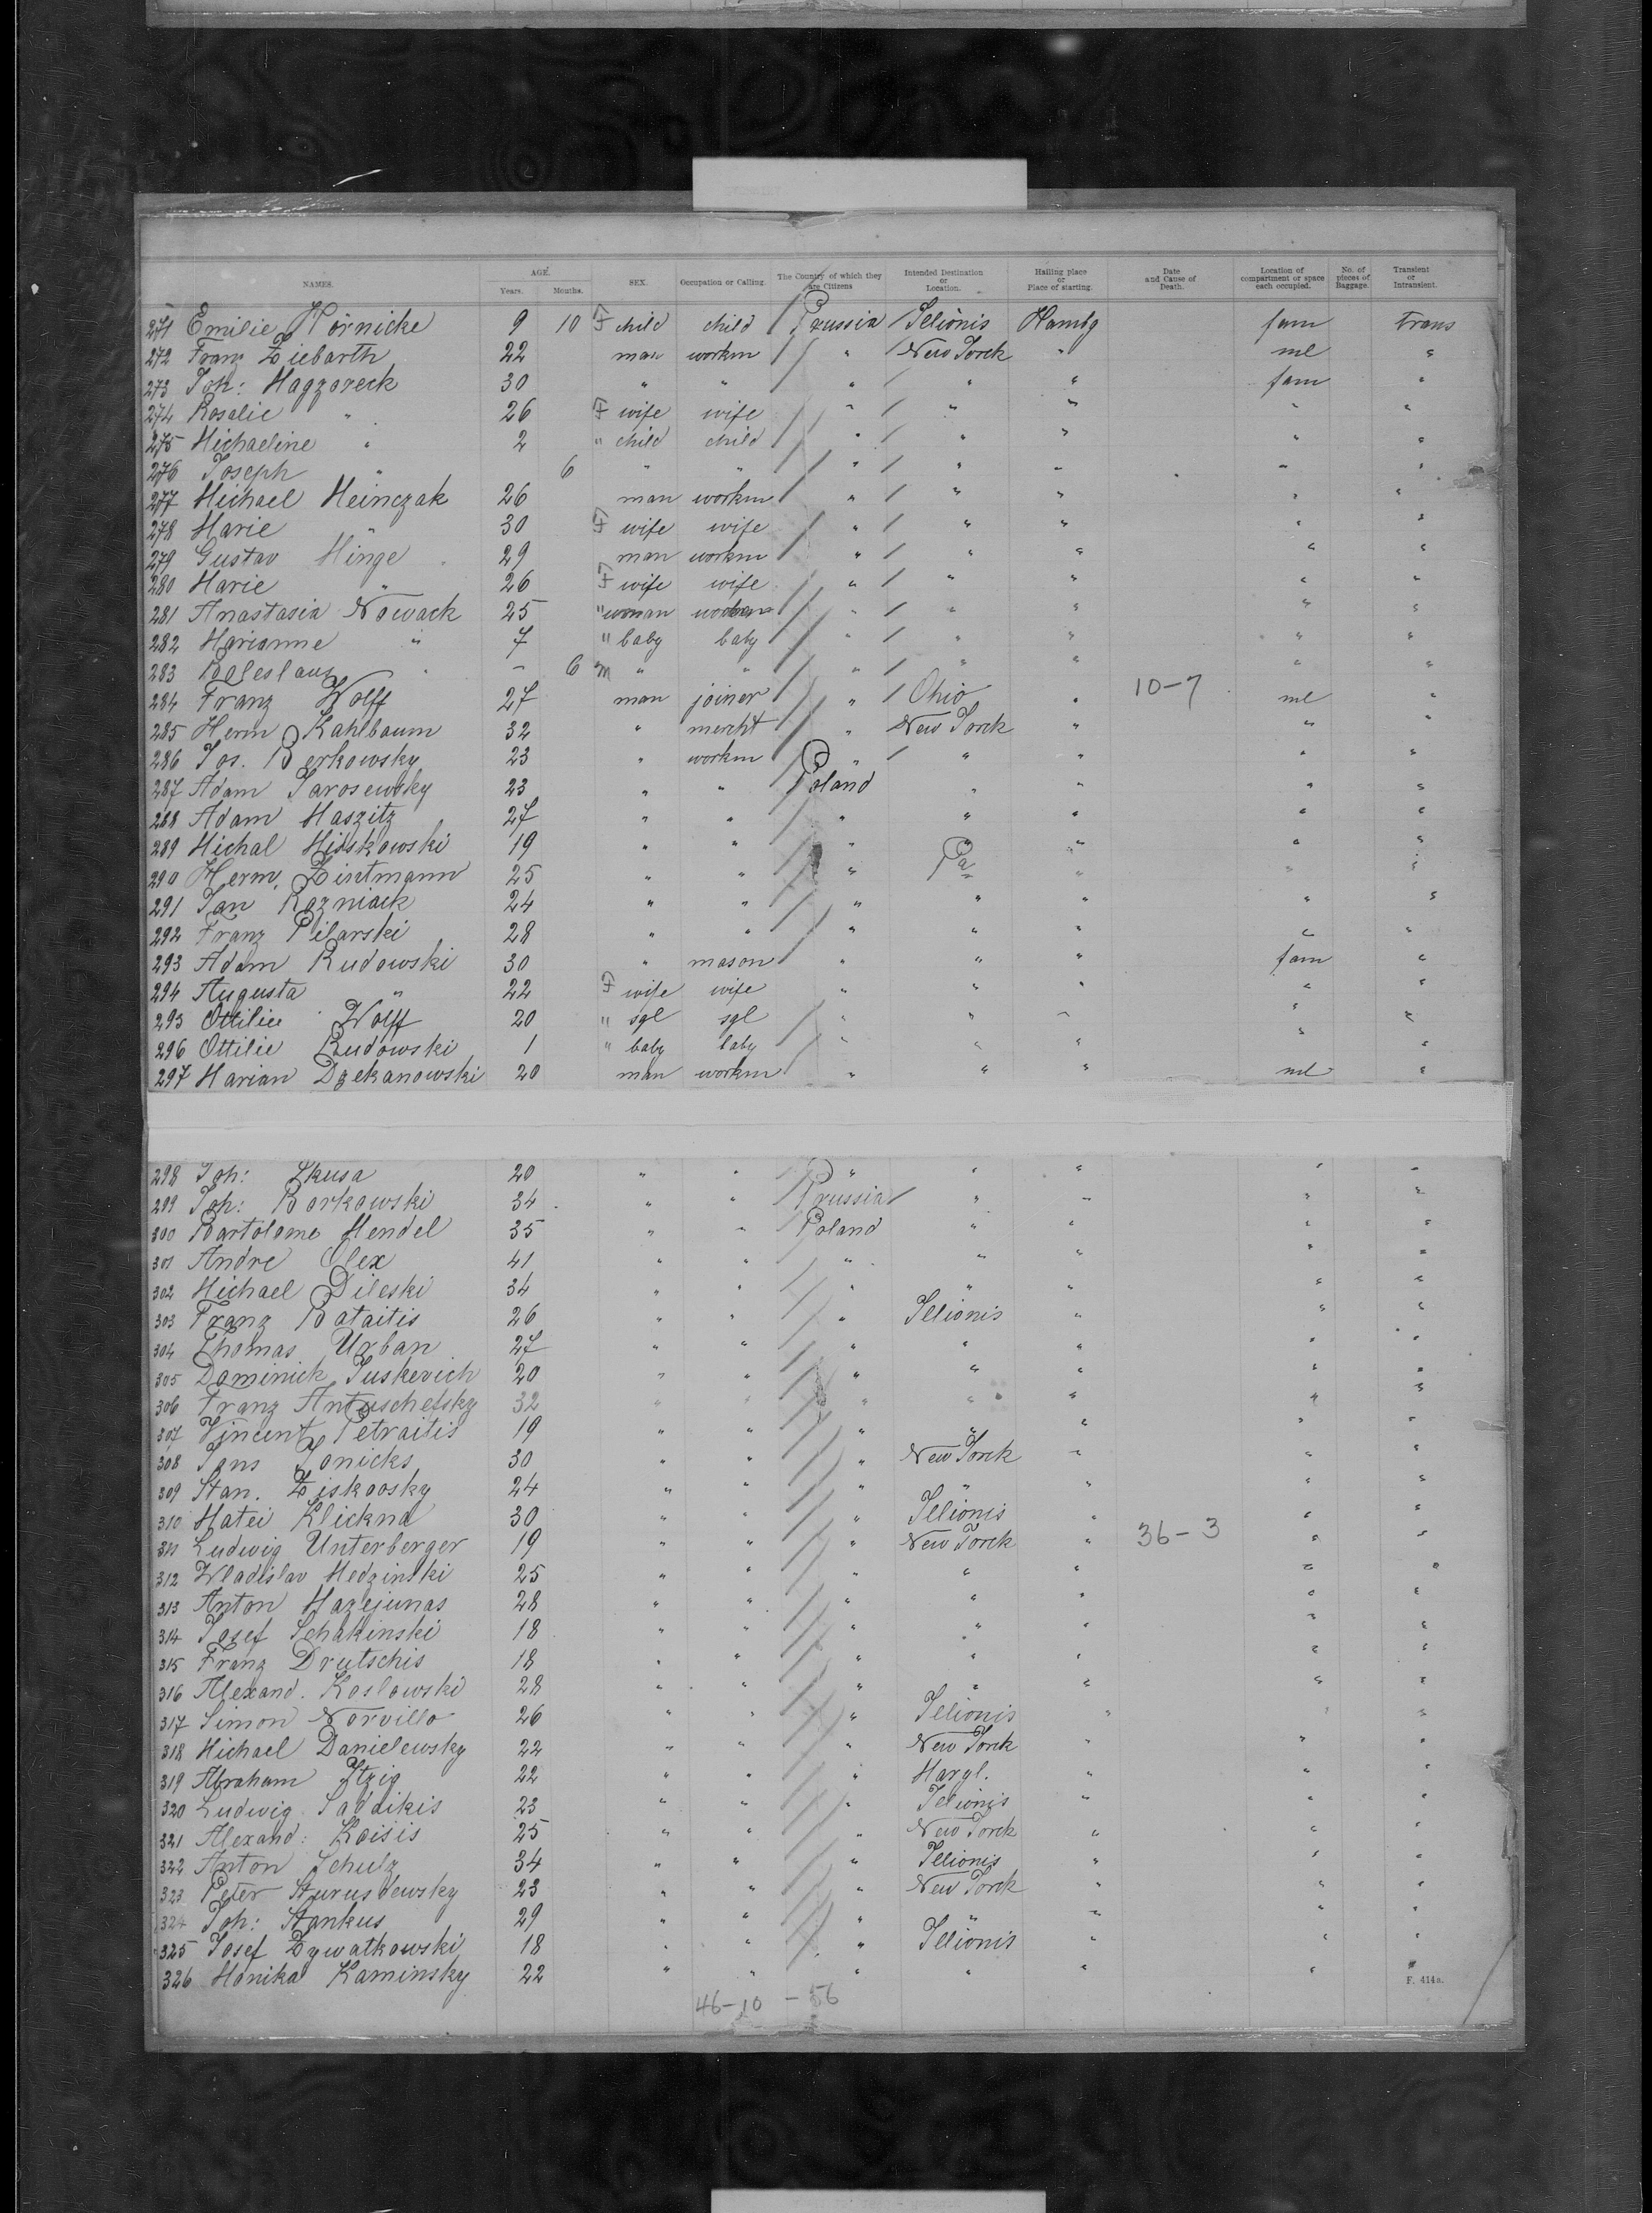 NAMES. AGE. Years. Months. SEX. Occupation or Calling. The Country of which they are Citizens Intended Destination or Location. Hailing place or Place of starting. Date and Cause of Death. Location of compartment or space each occupied. No. of pieces of Baggage. Transient or Intransient.
271 Emilie Hörnicke 9 10 F child child Prussia Hambg fam trans
272 Franz Ziebarth 22 man workm " New Yorck " ml "
273 Joh: 30 " " " " " fam "
274 Rosalie " 26 F wife wife " " " " "
275 Michaeline " 2 " child child " " " " "
276 Joseph " 6 " " " " " " "
277 Michael Heinczak 26 man workm " " " " "
278 Marie " 30 F wife wife " " " " "
279 Gustav Hinge 29 man workm " " " " "
280 Marie " 26 F wife wife " " " " "
281 Anastasia Nowack 25 " woman " " " " "
282 Marianne " 7 " baby baby " " " " "
283 Boleslaus " - 6 m " " " " " " "
284 Franz Wolff 27 man joiner " Ohio " 10-7 ml "
285 Herm Kahlbaum 32 " mercht " New Yorck " " "
286 Jos. Berkowsky 23 " workm " " " " "
287 Adam Jarosewsky 23 " " Poland " " " "
288 Adam Maszitz 27 " " " " " " "
289 Michal Misskowski 19 " " " " " " "
290 Herm. Zintmann 25 " " " Pa " " "
291 Jan Razniack 24 " " " " " " "
292 Franz Pilarski 28 " " " " " " "
293 Adam Rudowski 30 " mason " " " fam "
294 Augusta " 22 F wife wife " " " " "
295 Ottilie Wolff 20 " sgl sgl " " " " "
296 Ottilie Rudowski 1 " baby baby " " " " "
297 Marian Dzekanowski 20 man workm " " " ml "
298 Joh: Skusa 20 " " " " " " "
299 Joh: Borkowski 34 " " Prussia " " " "
300 Bartolome Mendel 35 " " Poland " " " "
301 Andre Olex 41 " " " " " " "
302 Michael Dileski 34 " " " " " " "
303 Franz Bataitis 26 " " " " " "
304 Thomas Urban 27 " " " " " " "
305 Dominick Juskevich 20 " " " " " " "
306 Franz Antuschefsky 32 " " " " " " "
307 Vincent Petraitis 19 " " " " " " "
308 Jans Janicks 30 " " " New Yorck " " "
309 Stan. Ziskoosky 24 " " " " " " "
310 Matei Klickna 30 " " " " " "
311 Ludwig Unterberger 19 " " " New Yorck " 36-3 " "
312 Wladislav Medzinski 25 " " " " " " "
313 Anton Mazejunas 28 " " " " " " "
314 Josef Schakinski 18 " " " " " " "
315 Franz Drutschis 18 " " " " " " "
316 Alexand. Koslowski 28 " " " " " " "
317 Simon Norvillo 26 " " " " "
318 Michael Danielewsky 22 " " " New Yorck " " "
319 Abraham Itzig 22 " " " Maryl. " " "
320 Ludwig Sadaikis 23 " " " " " "
321 Alexand: Koisis 25 " " " New Yorck " " "
322 Anton Schulz 34 " " " " " "
323 Peter 23 " " " New Yorck " " "
324 Joh: Stankus 29 " " " " " " "
325 Josef Zywatkowski 18 " " " " " "
326 Monika Kaminsky 22 " " " " " " "
F. 414a.
46-10 - 56